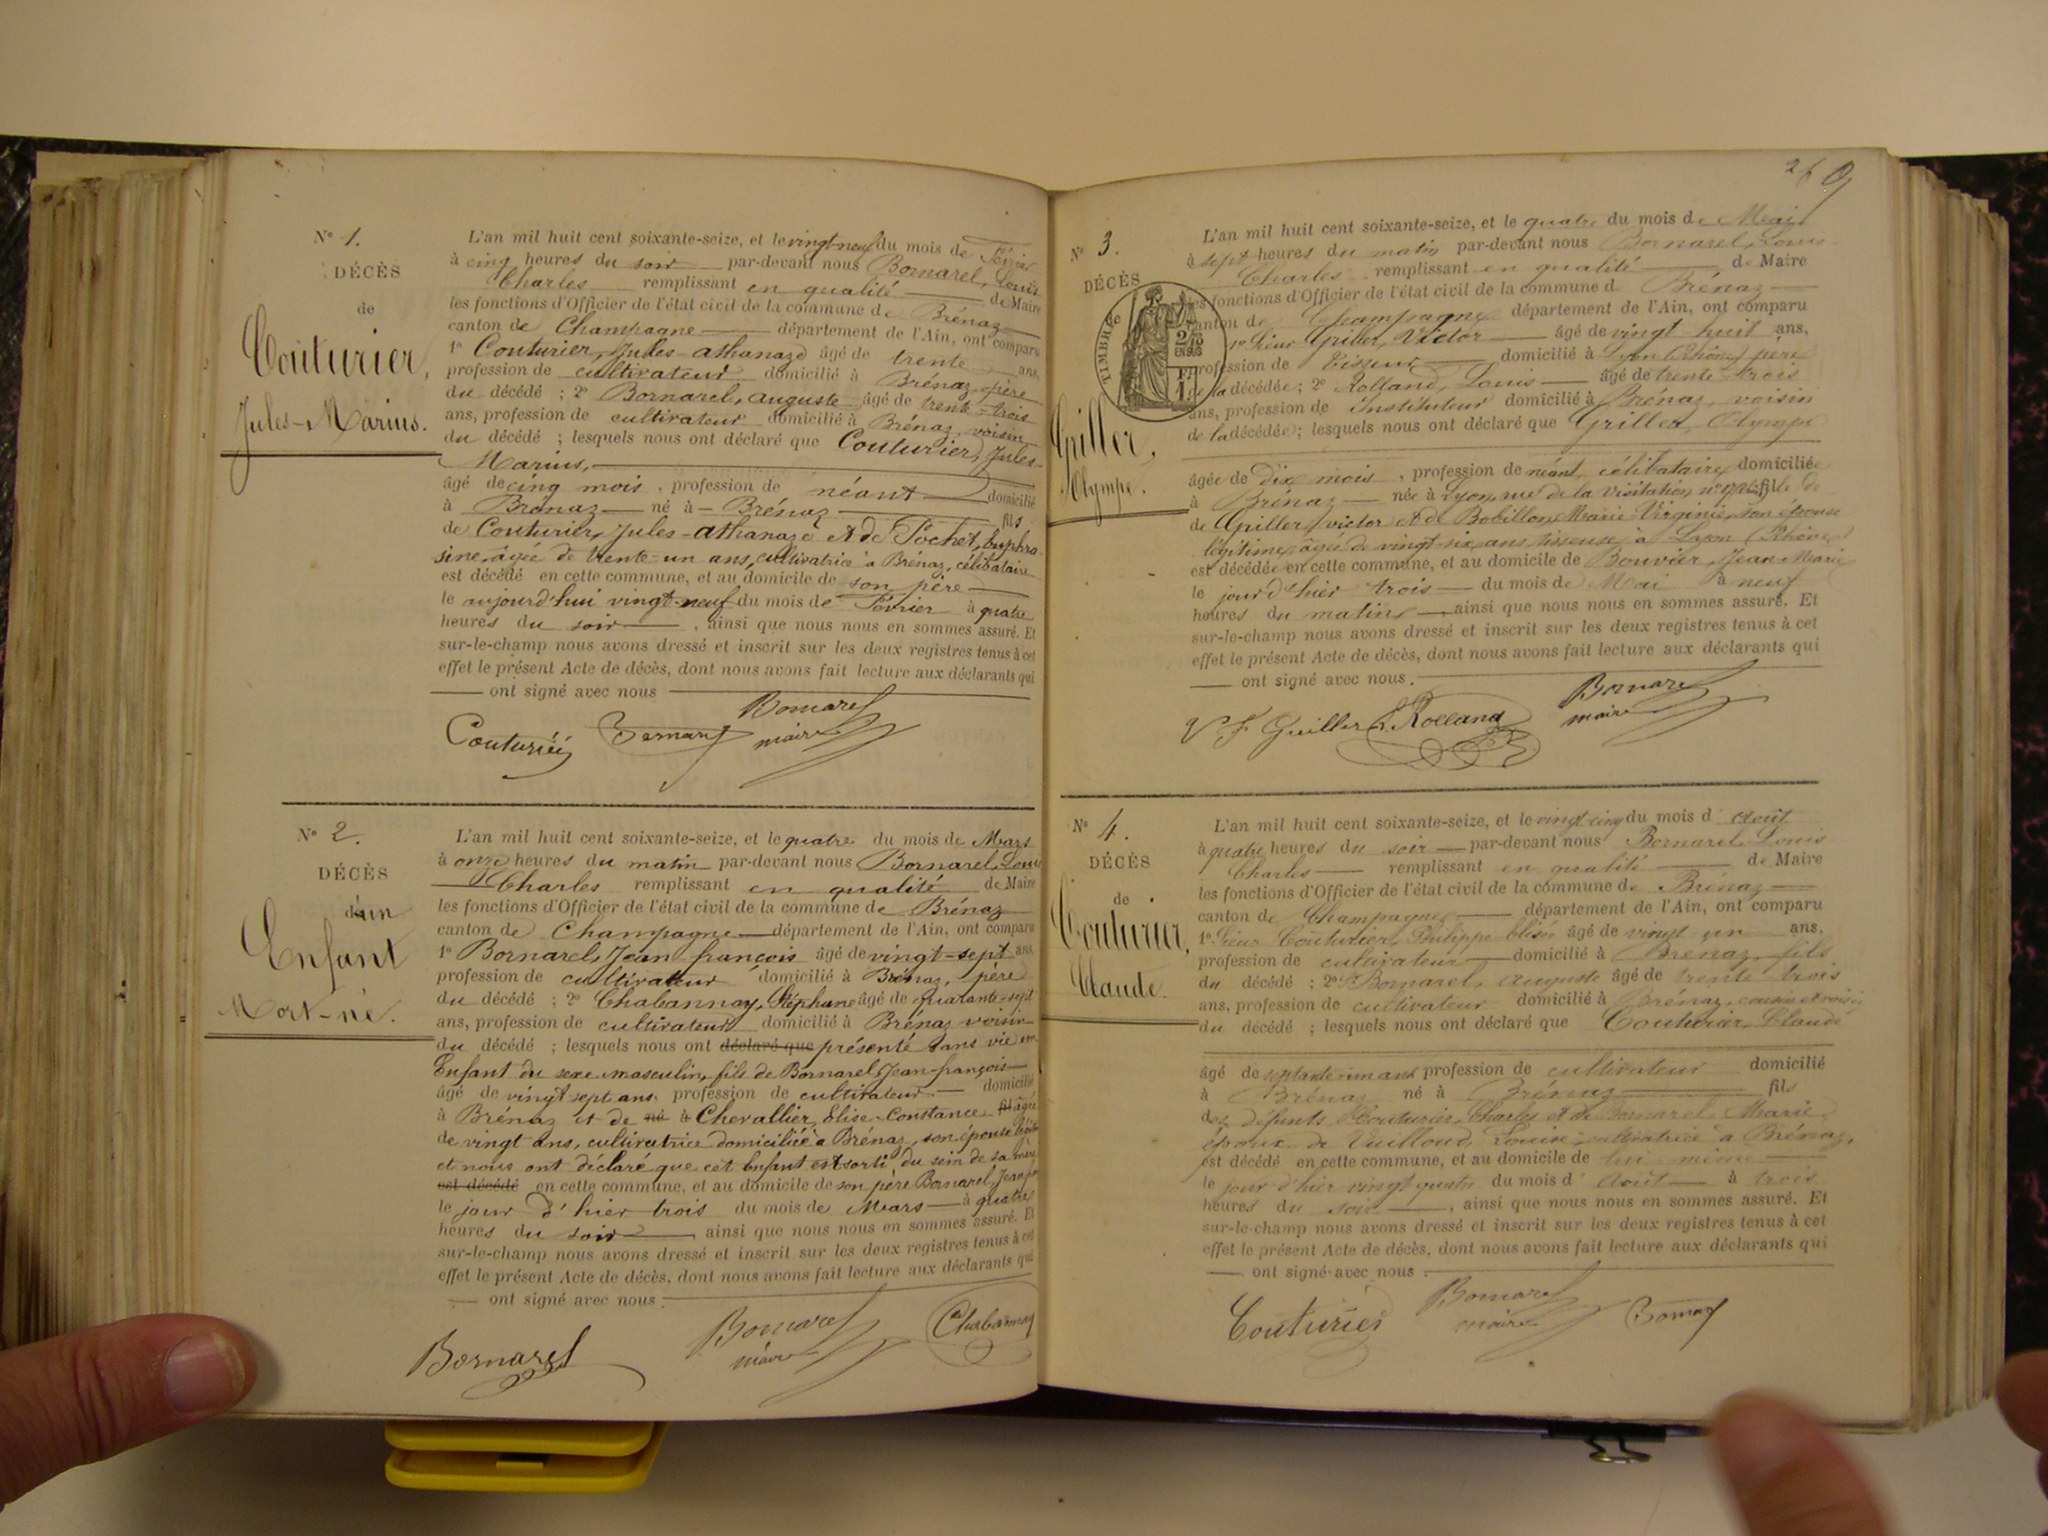 N° 1.
DÉCÈS
de
Couturier,
Jules-Marius.
L'an mil huit cent soixante-seize, et le vingt-neuf du mois de Février
à cinq heures du soir par-devant nous Bornarel, Louis
Charles remplissant en qualité de Maire
les fonctions d'Officier de l'état civil de la commune de Brénaz
canton de Champagne département de l'Ain, ont comparu
1° Couturier, Jules-athanaze âgé de trente ans,
profession de cultivateur domicilié à Brénaz, père
du décédé ; 2° Bornarel, auguste âgé de trente-trois
ans, profession de cultivateur domicilié à Brénaz, voisin
du décédé ; lesquels nous ont déclaré que Couturier, Jules-
Marius,
âgé de cinq mois, profession de néant domicilié
à Brénaz né à Brénaz fils
de Couturier, Jules-athanaze et de Pochet, Euphra-
sine, âgée de trente-un ans, cultivatrice à Brénaz, célibataire
est décédé en cette commune, et au domicile de son père
le aujourd'hui vingt-neuf du mois de Février à quatre
heures du soir, ainsi que nous nous en sommes assuré. Et
sur-le-champ nous avons dressé et inscrit sur les deux registres tenus à cet
effet le présent Acte de décès, dont nous avons fait lecture aux déclarants qui
ont signé avec nous
Couturier Bornarel
maire
N° 2.
DÉCÈS
d'un
Enfant
Mort-né.
L'an mil huit cent soixante-seize, et le quatre du mois de Mars
à onze heures du matin par-devant nous Bornarel, Louis
Charles remplissant en qualité de Maire
les fonctions d'Officier de l'état civil de la commune de Brénaz
canton de Champagne département de l'Ain, ont comparu
1° Bornarel, Jean françois âgé de vingt-sept ans,
profession de cultivateur domicilié à Brénaz, père
du décédé ; 2° Chabannay, Stéphane âgé de quarante-sept
ans, profession de cultivateur domicilié à Brénaz voisin
du décédé ; lesquels nous ont déclaré que présenté sans vie un
Enfant du sexe masculin, fils de Bornarel, Jean-françois
âgé de vingt sept ans, profession de cultivateur domicilié
à Brénaz et de né à Chevallier, Elise-Constance fil âgée
de vingt ans, cultivatrice domiciliée à Brénaz, son épouse
et nous ont déclaré que cet Enfant est sorti du sein de sa mère
est décédé en cette commune, et au domicile de son père Bornarel,
le jour d'hier trois du mois de Mars à quatre
heures du soir, ainsi que nous nous en sommes assuré. Et
sur-le-champ nous avons dressé et inscrit sur les deux registres tenus à cet
effet le présent Acte de décès, dont nous avons fait lecture aux déclarants qui
ont signé avec nous.
Bornarel Bornarel Chabannay
maire
269
N° 3.
DÉCÈS
de
TIMBRE
2/10
EN SUS
1 F
Griller,
Olympe.
L'an mil huit cent soixante-seize, et le quatre du mois de Mai
à sept heures du matin par-devant nous Bornarel, Louis
Charles remplissant en qualité de Maire
les fonctions d'Officier de l'état civil de la commune de Brénaz
canton de Champagne département de l'Ain, ont comparu
1° Sieur Griller, Victor âgé de vingt huit ans,
profession de Tisseur domicilié à Lyon (Rhône) père
de la décédée ; 2° Rolland, Louis âgé de trente trois
ans, profession de instituteur domicilié à Brénaz, voisin
de la décédée ; lesquels nous ont déclaré que Griller, Olympe
âgée de dix mois, profession de néant, célibataire domiciliée
à Brénaz née à Lyon, rue de la Visitation, fille
de Griller, victor et de Bobillon, Marie Virginie, son épouse
légitime, âgée de vingt-six ans, tisseuse, à Lyon (Rhône)
est décédée en cette commune, et au domicile de Bouvier, Jean Marie
le jour d'hier trois du mois de Mai à neuf
heures du matin, ainsi que nous nous en sommes assuré. Et
sur-le-champ nous avons dressé et inscrit sur les deux registres tenus à cet
effet le présent Acte de décès, dont nous avons fait lecture aux déclarants qui
ont signé avec nous.
V F Guiller L Rolland Bornarel
maire
N° 4.
DÉCÈS
de
Couturier,
Claude.
L'an mil huit cent soixante-seize, et le vingt-cinq du mois d'Août
à quatre heures du soir par-devant nous Bornarel, Louis
Charles remplissant en qualité de Maire
les fonctions d'Officier de l'état civil de la commune de Brénaz
canton de Champagne département de l'Ain, ont comparu
1° Sieur Couturier, Philippe Elisée âgé de vingt un ans,
profession de cultivateur domicilié à Brénaz, fils
du décédé ; 2° Bornarel, auguste âgé de trente trois
ans, profession de cultivateur domicilié à Brénaz, cousin et voisin
du décédé ; lesquels nous ont déclaré que Couturier, Claude
âgé de ans profession de cultivateur domicilié
à Brénaz né à Brénaz fils
des défunts Couturier, Charles et de Bornarel, Marie
époux de Vuilloud, Louise, cultivatrice à Brénaz,
est décédé en cette commune, et au domicile de lui même
le jour d'hier vingt quatre du mois d'Août à trois
heures du soir, ainsi que nous nous en sommes assuré. Et
sur-le-champ nous avons dressé et inscrit sur les deux registres tenus à cet
effet le présent Acte de décès, dont nous avons fait lecture aux déclarants qui
ont signé avec nous.
Couturier Bornarel
maire